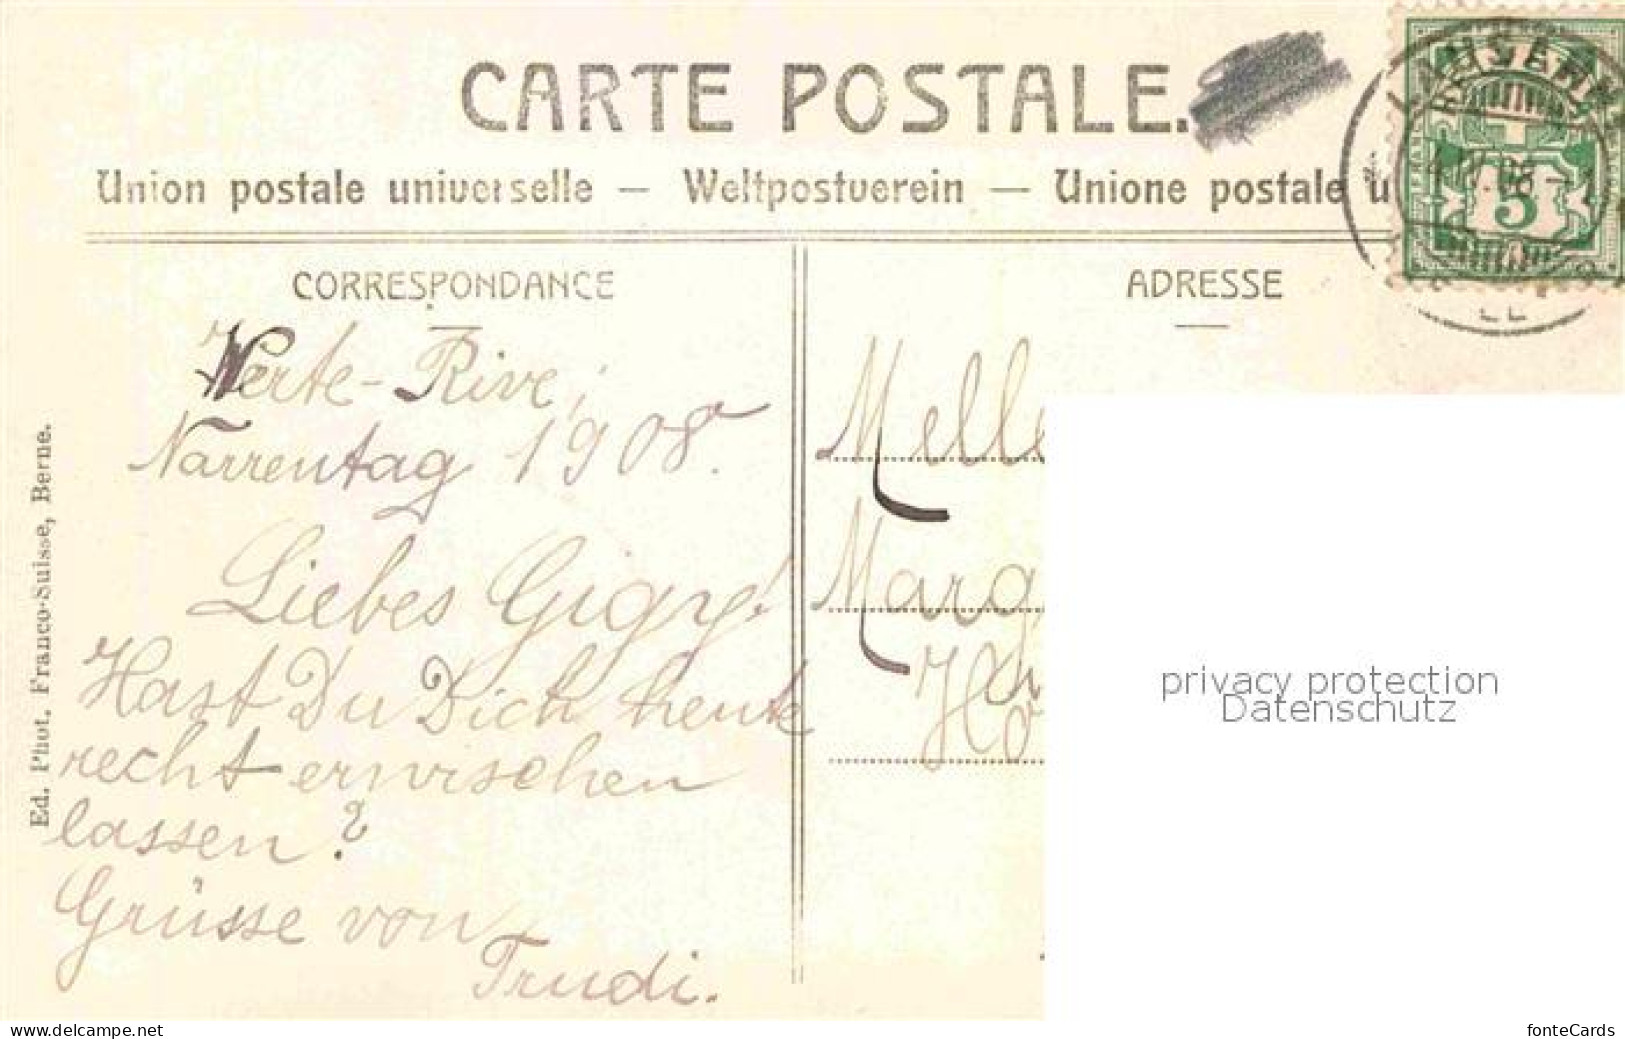 CARTE POSTALE.
Union postale universelle — Weltpostverein — Unione postale u
CORRESPONDANCE
ADRESSE
Werte-Rive,
Narrentag 1908.
Liebes Gigy!
Hast Du Dich heute
recht erwischen
lassen?
Grüsse von
Trudi.
Melle
Marg
Ed. Phot. Franco-Suisse, Berne.
LAUSANN
FRANCO
5
privacy protection
Datenschutz
www.delcampe.net
fonteCards